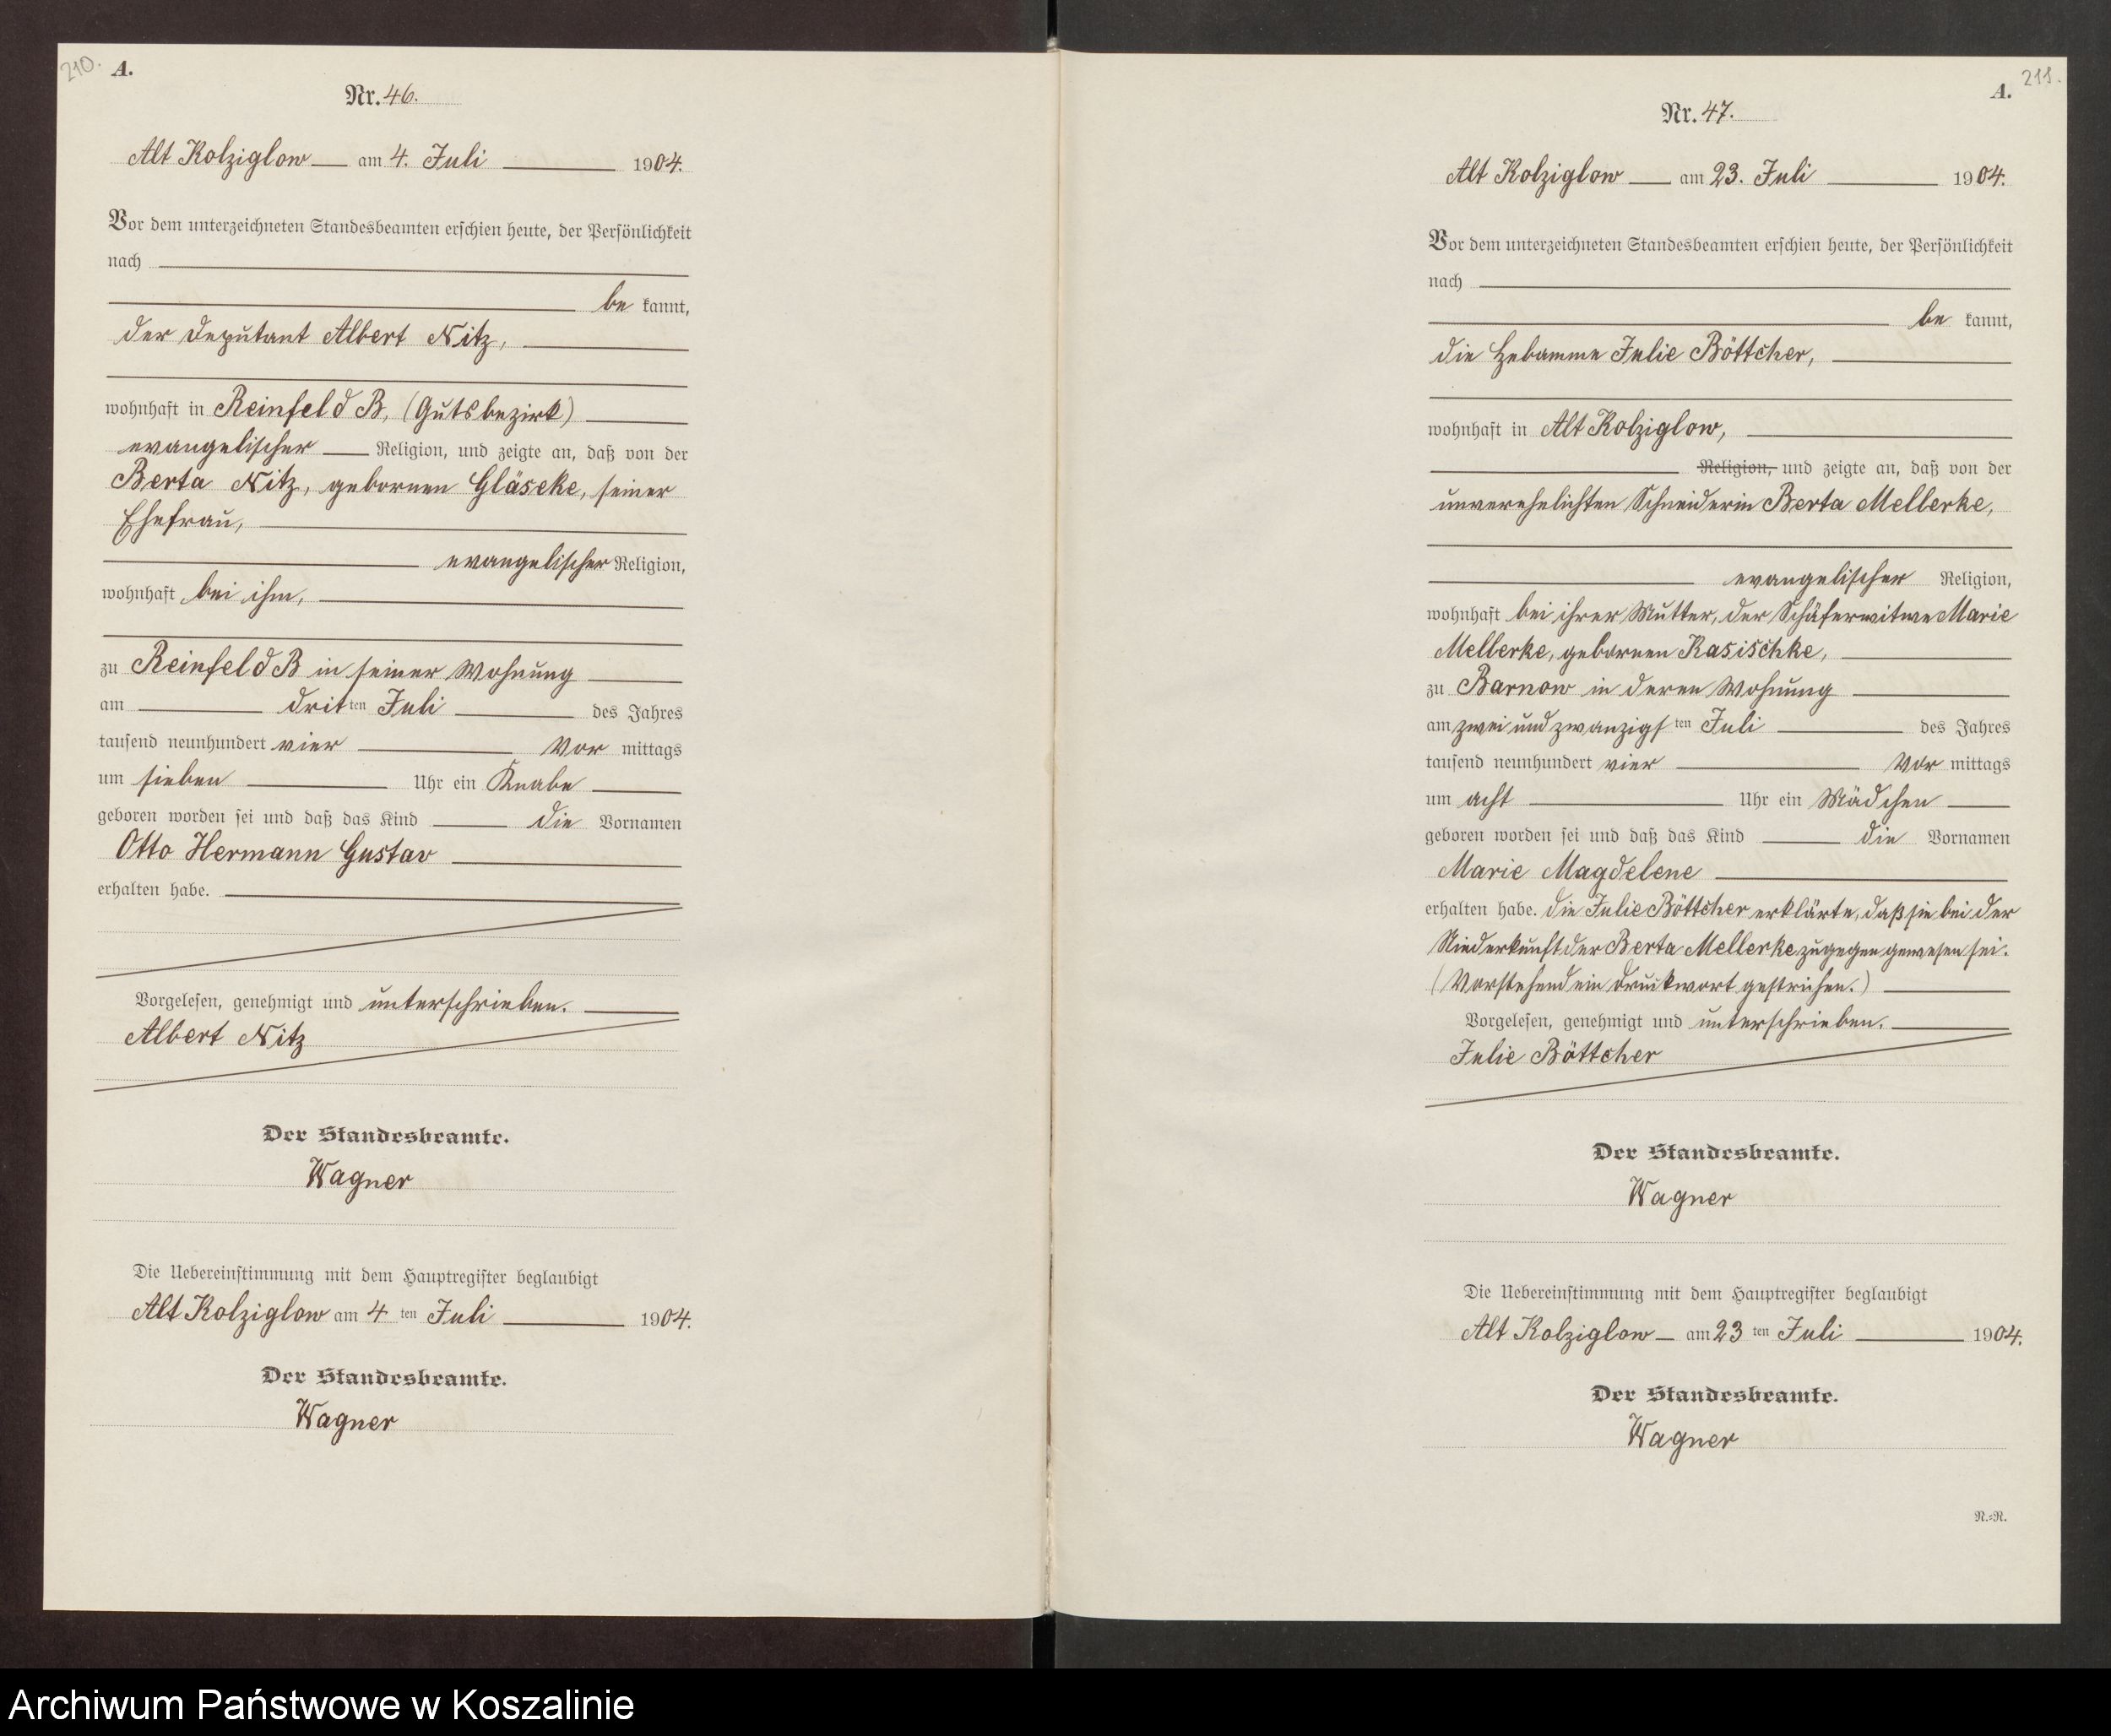 210.
A.
Nr. 46.
Alt Kolziglow am 4. Juli 1904.
Vor dem unterzeichneten Standesbeamten erschien heute, der Persönlichkeit
nach
be kannt,
der Deputant Albert Nitz,
wohnhaft in Reinfeld B, (Gutsbezirk)
evangelischer Religion, und zeigte an, daß von der
Berta Nitz, gebornen Gläseke, seiner
Ehefrau,
evangelischer Religion,
wohnhaft bei ihm,
zu Reinfeld B in seiner Wohnung
am dritten Juli des Jahres
tausend neunhundert vier Vor mittags
um sieben Uhr ein Knabe
geboren worden sei und daß das Kind die Vornamen
Otto Hermann Gustav
erhalten habe.
Vorgelesen, genehmigt und unterschrieben.
Albert Nitz
Der Standesbeamte.
Wagner
Die Uebereinstimmung mit dem Hauptregister beglaubigt
Alt Kolziglow am 4 ten Juli 1904.
Der Standesbeamte.
Wagner
211.
A.
Nr. 47.
Alt Kolziglow am 23. Juli 1904.
Vor dem unterzeichneten Standesbeamten erschien heute, der Persönlichkeit
nach
be kannt,
die Hebamme Julie Böttcher,
wohnhaft in Alt Kolziglow,
Religion, und zeigte an, daß von der
unverehelichten Schneiderin Berta Mellerke,
evangelischer Religion,
wohnhaft bei ihrer Mutter, der Schäferwitwe Marie
Mellerke, gebornen Kasischke,
zu Barnow in deren Wohnung
am zwei und zwanzigsten Juli des Jahres
tausend neunhundert vier Vor mittags
um acht Uhr ein Mädchen
geboren worden sei und daß das Kind die Vornamen
Marie Magdelene
erhalten habe. Die Julie Böttcher erklärte, daß sie bei der
Niederkunft der Berta Mellerke zugegen gewesen sei.
(Vorstehend ein Druckwort gestrichen.)
Vorgelesen, genehmigt und unterschrieben.
Julie Böttcher
Der Standesbeamte.
Wagner
Die Uebereinstimmung mit dem Hauptregister beglaubigt
Alt Kolziglow am 23 ten Juli 1904.
Der Standesbeamte.
Wagner
N.=N.
Archiwum Państwowe w Koszalinie